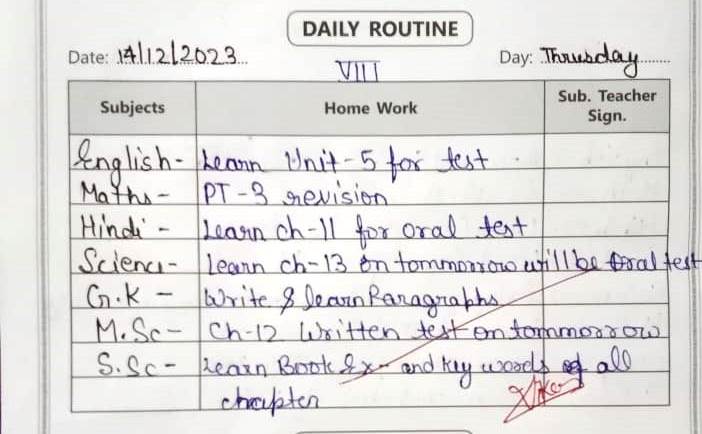 DAILY ROUTINE
Date: 14/12/2023
Day: Thrusday
VIII
Subjects Home Work Sub. Teacher Sign.
English - Learn Unit-5 for test
Maths - PT-3 revision
Hindi - Learn ch-11 for oral test
Scienci - learn ch-13 on tommorrow will be oral test
G.K - Write & learn Paragraphs
M.Sc - Ch-12 Written test on tommorrow
S.Sc - Learn Book Ex- and key words of all
chapter